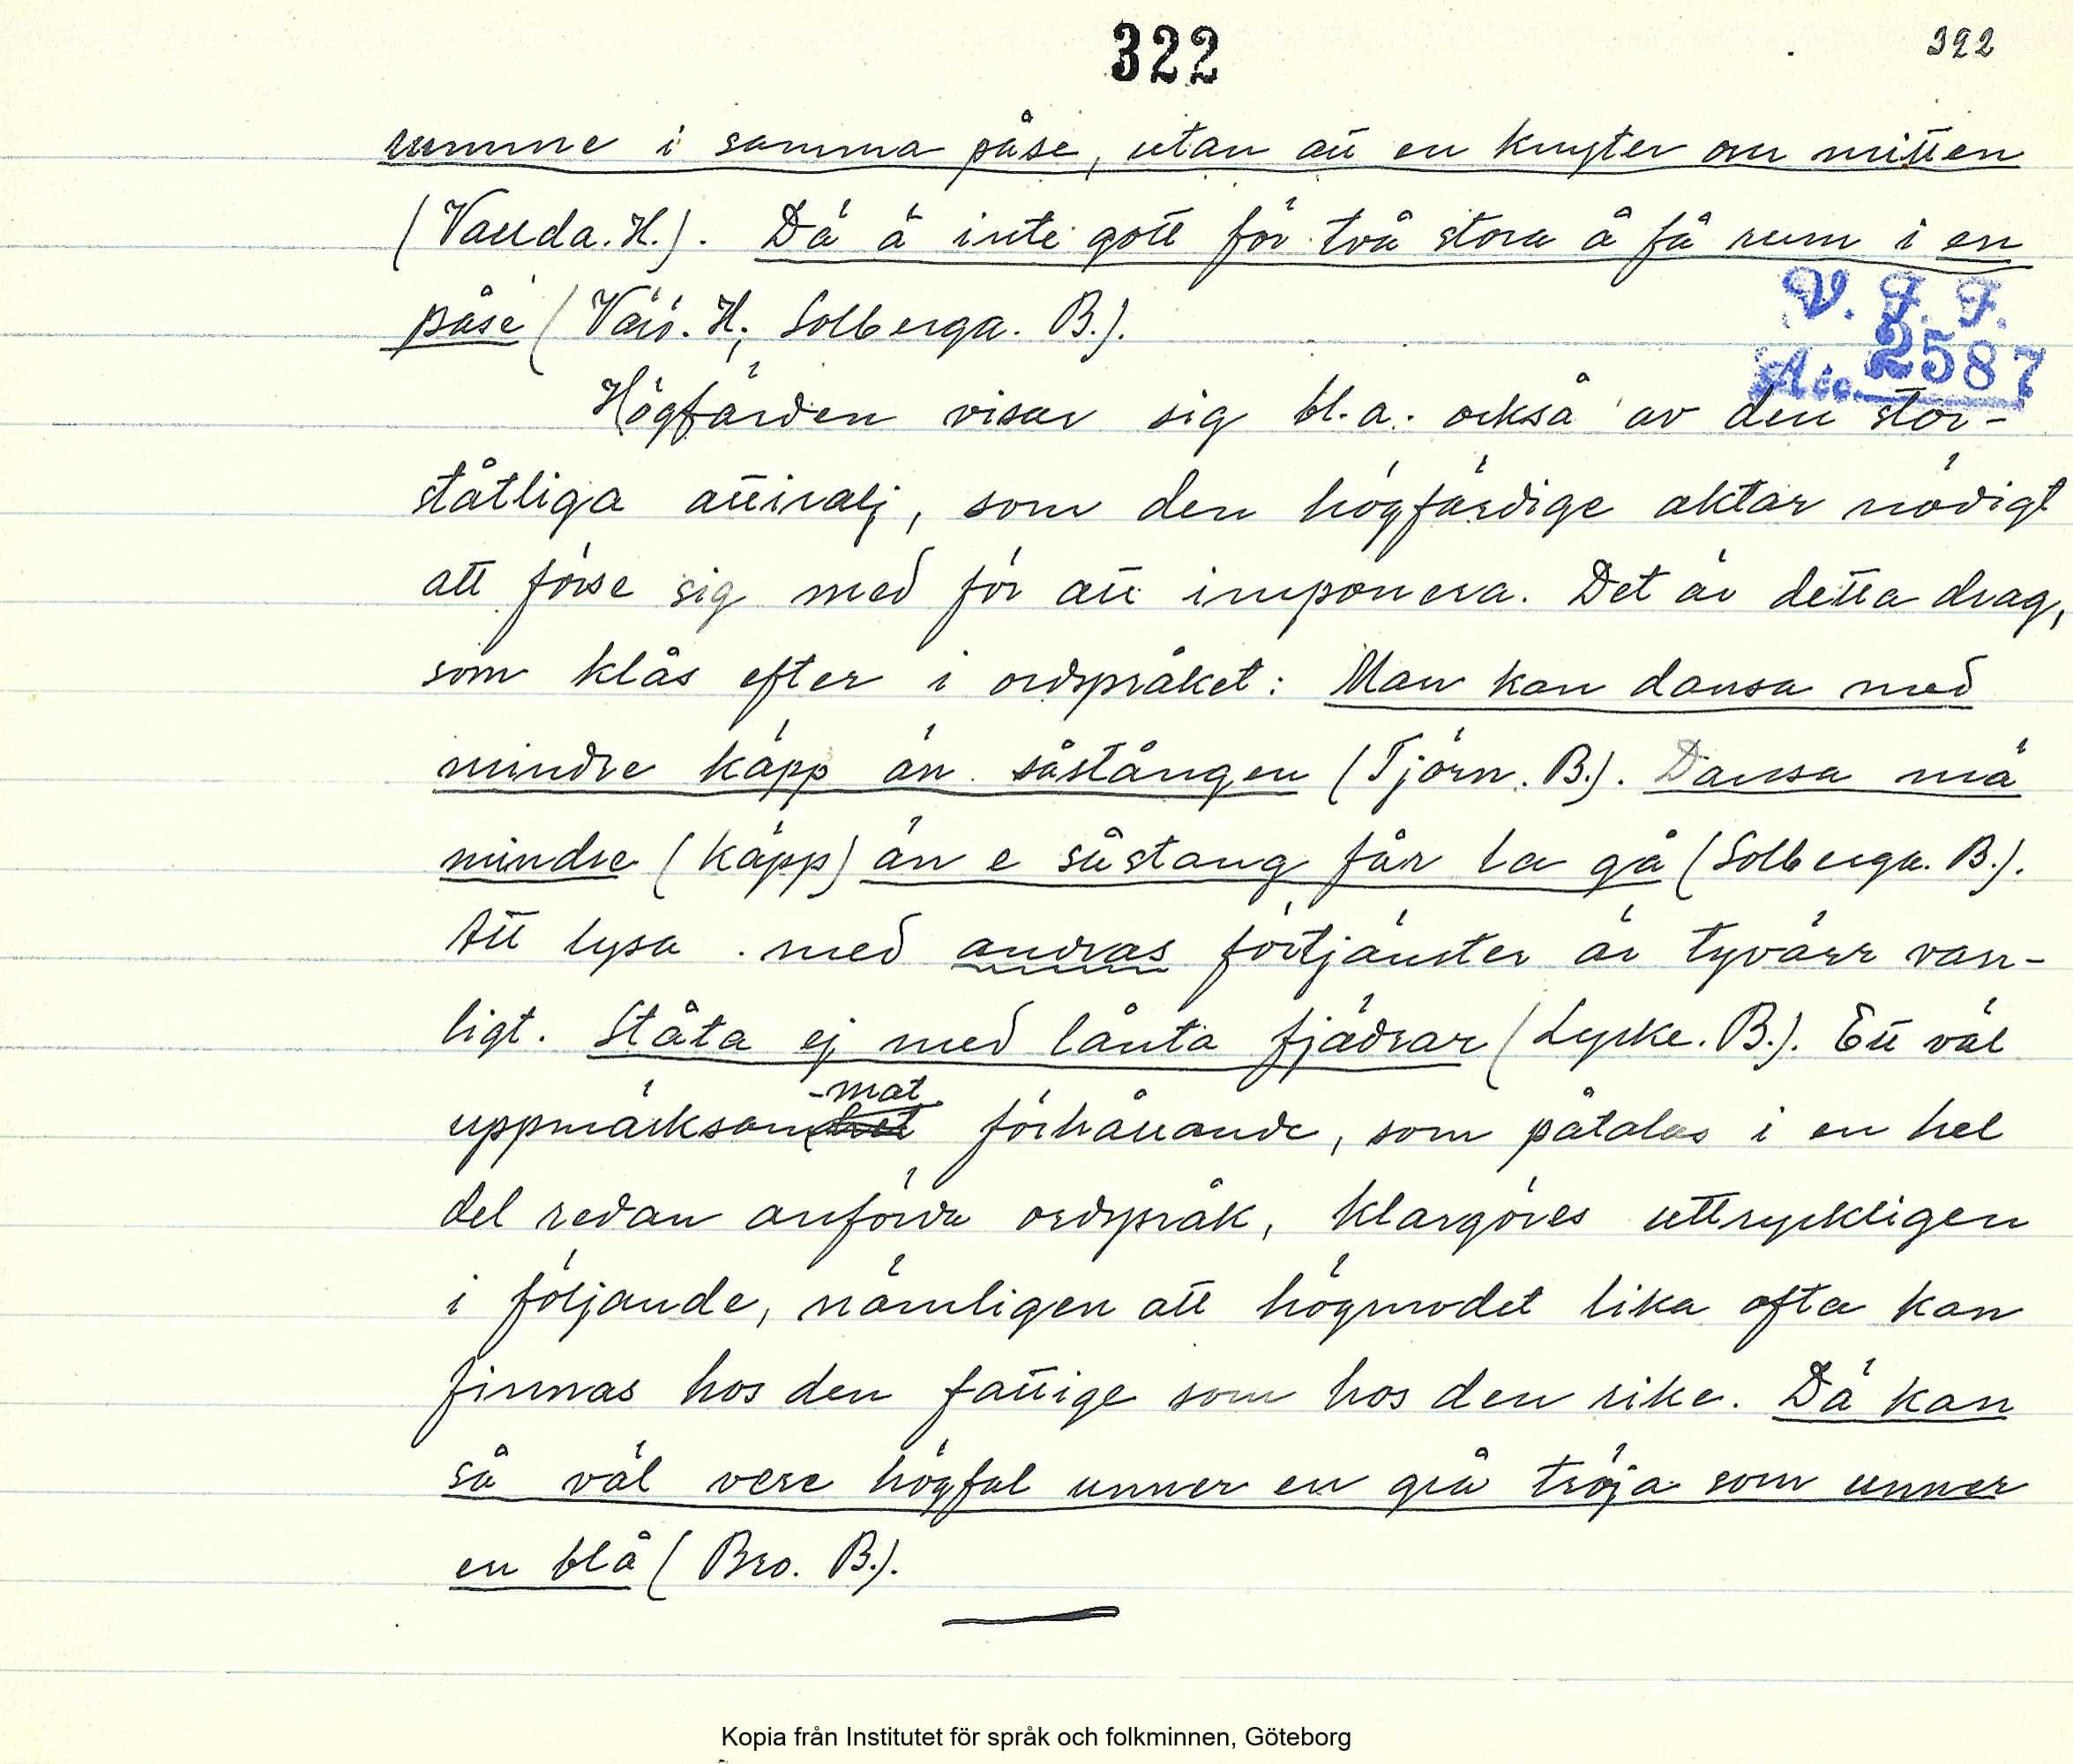 322
322
rumme i samma påse, utan att en knyter om mitten
(Vauda. H.). Dä ä inte gott för två stora å få rum i en
påse (Värö. H; Solberga. B.).
V. F. F.
Acc. 2587
Högfärden visar sig bl. a. också av den stor-
ståtliga attiralj, som den högfärdige aktar nödigt
att förse sig med för att imponera. Det är detta drag,
som klås efter i ordspråket: Man kan dansa med
mindre käpp än såstången (Tjörn. B.). Dansa mä
mindre (käpp) än e såstang får la gå (Solberga. B.).
Att lysa med andras förtjänster är tyvärr van-
ligt. Ståta ej med lånta fjädrar (Lycke. B.). Ett väl
-mat
uppmärksamhet förhållande, som påtalas i en hel
del redan anförda ordspråk, klargöres uttryckligen
i följande, nämligen att högmodet lika ofta kan
finnas hos den fattige som hos den rike. Dä kan
så väl vere högfal unner en grå tröja som unner
en blå (Bro. B.).
Kopia från Institutet för språk och folkminnen, Göteborg